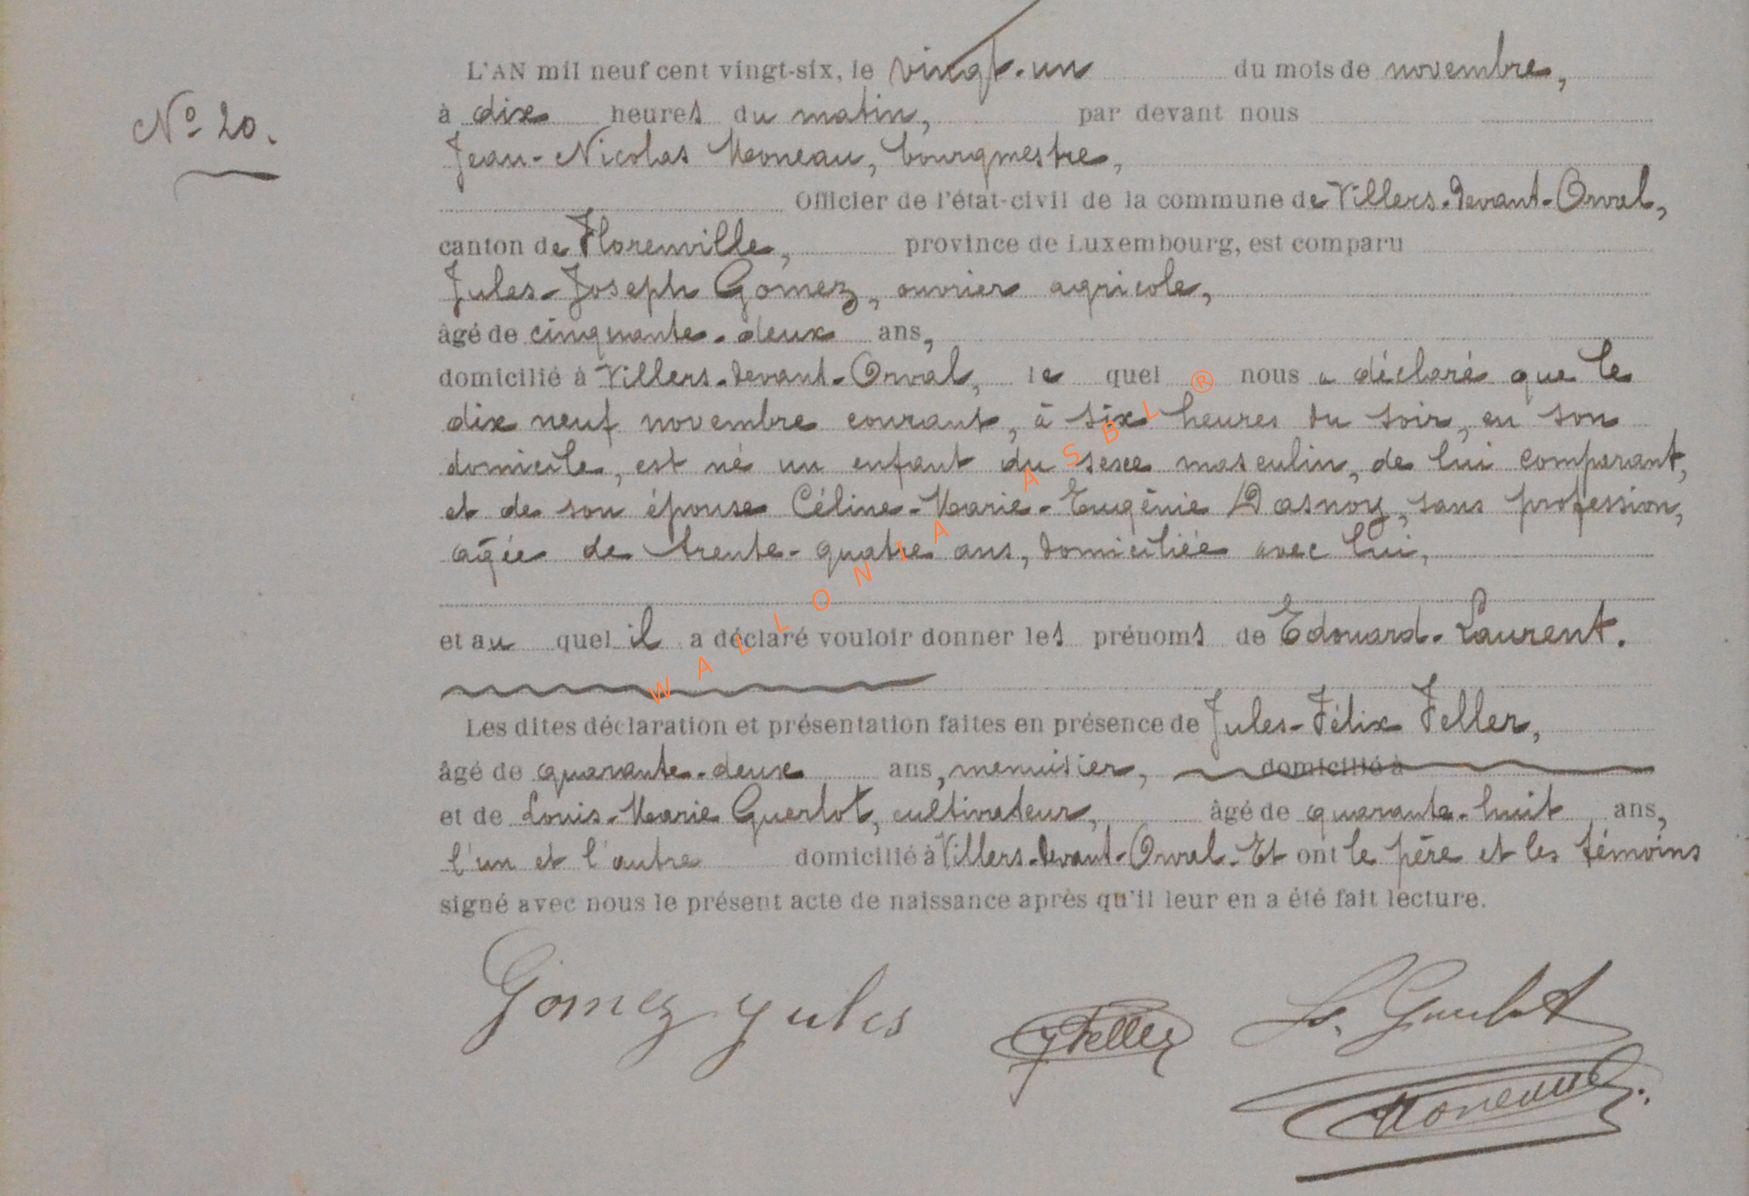 L'AN mil neuf cent vingt-six, le vingt-un du mois de novembre,
N° 20.
à dix heures du matin, par devant nous
Jean-Nicolas Moneau, bourgmestre,
Officier de l'état-civil de la commune de Villers-devant-Orval,
canton de Florenville, province de Luxembourg, est comparu
Jules-Joseph Gomez, ouvrier agricole,
âgé de cinquante-deux ans,
domicilié à Villers-devant-Orval, le quel nous a déclaré que le
dix neuf novembre courant, à six heures du soir, en son
domicile, est né un enfant du sexe masculin, de lui comparant,
et de son épouse Céline-Marie-Eugénie Dasnoy, sans profession,
agée de trente-quatre ans, domiciliée avec lui,
et au quel il a déclaré vouloir donner les prénoms de Edouard-Laurent.
Les dites déclaration et présentation faites en présence de Jules-Félix Feller,
âgé de quarante-deux ans, menuisier, domicilié à
et de Louis-Marie Guerlot, cultivateur, âgé de quarante-huit ans,
l'un et l'autre domicilié à Villers-devant-Orval. Et ont le père et les témoins
signé avec nous le présent acte de naissance après qu'il leur en a été fait lecture.
Gomez Jules
J Feller
L. Guerlot
Moneau
WALLONIA ASBL ®